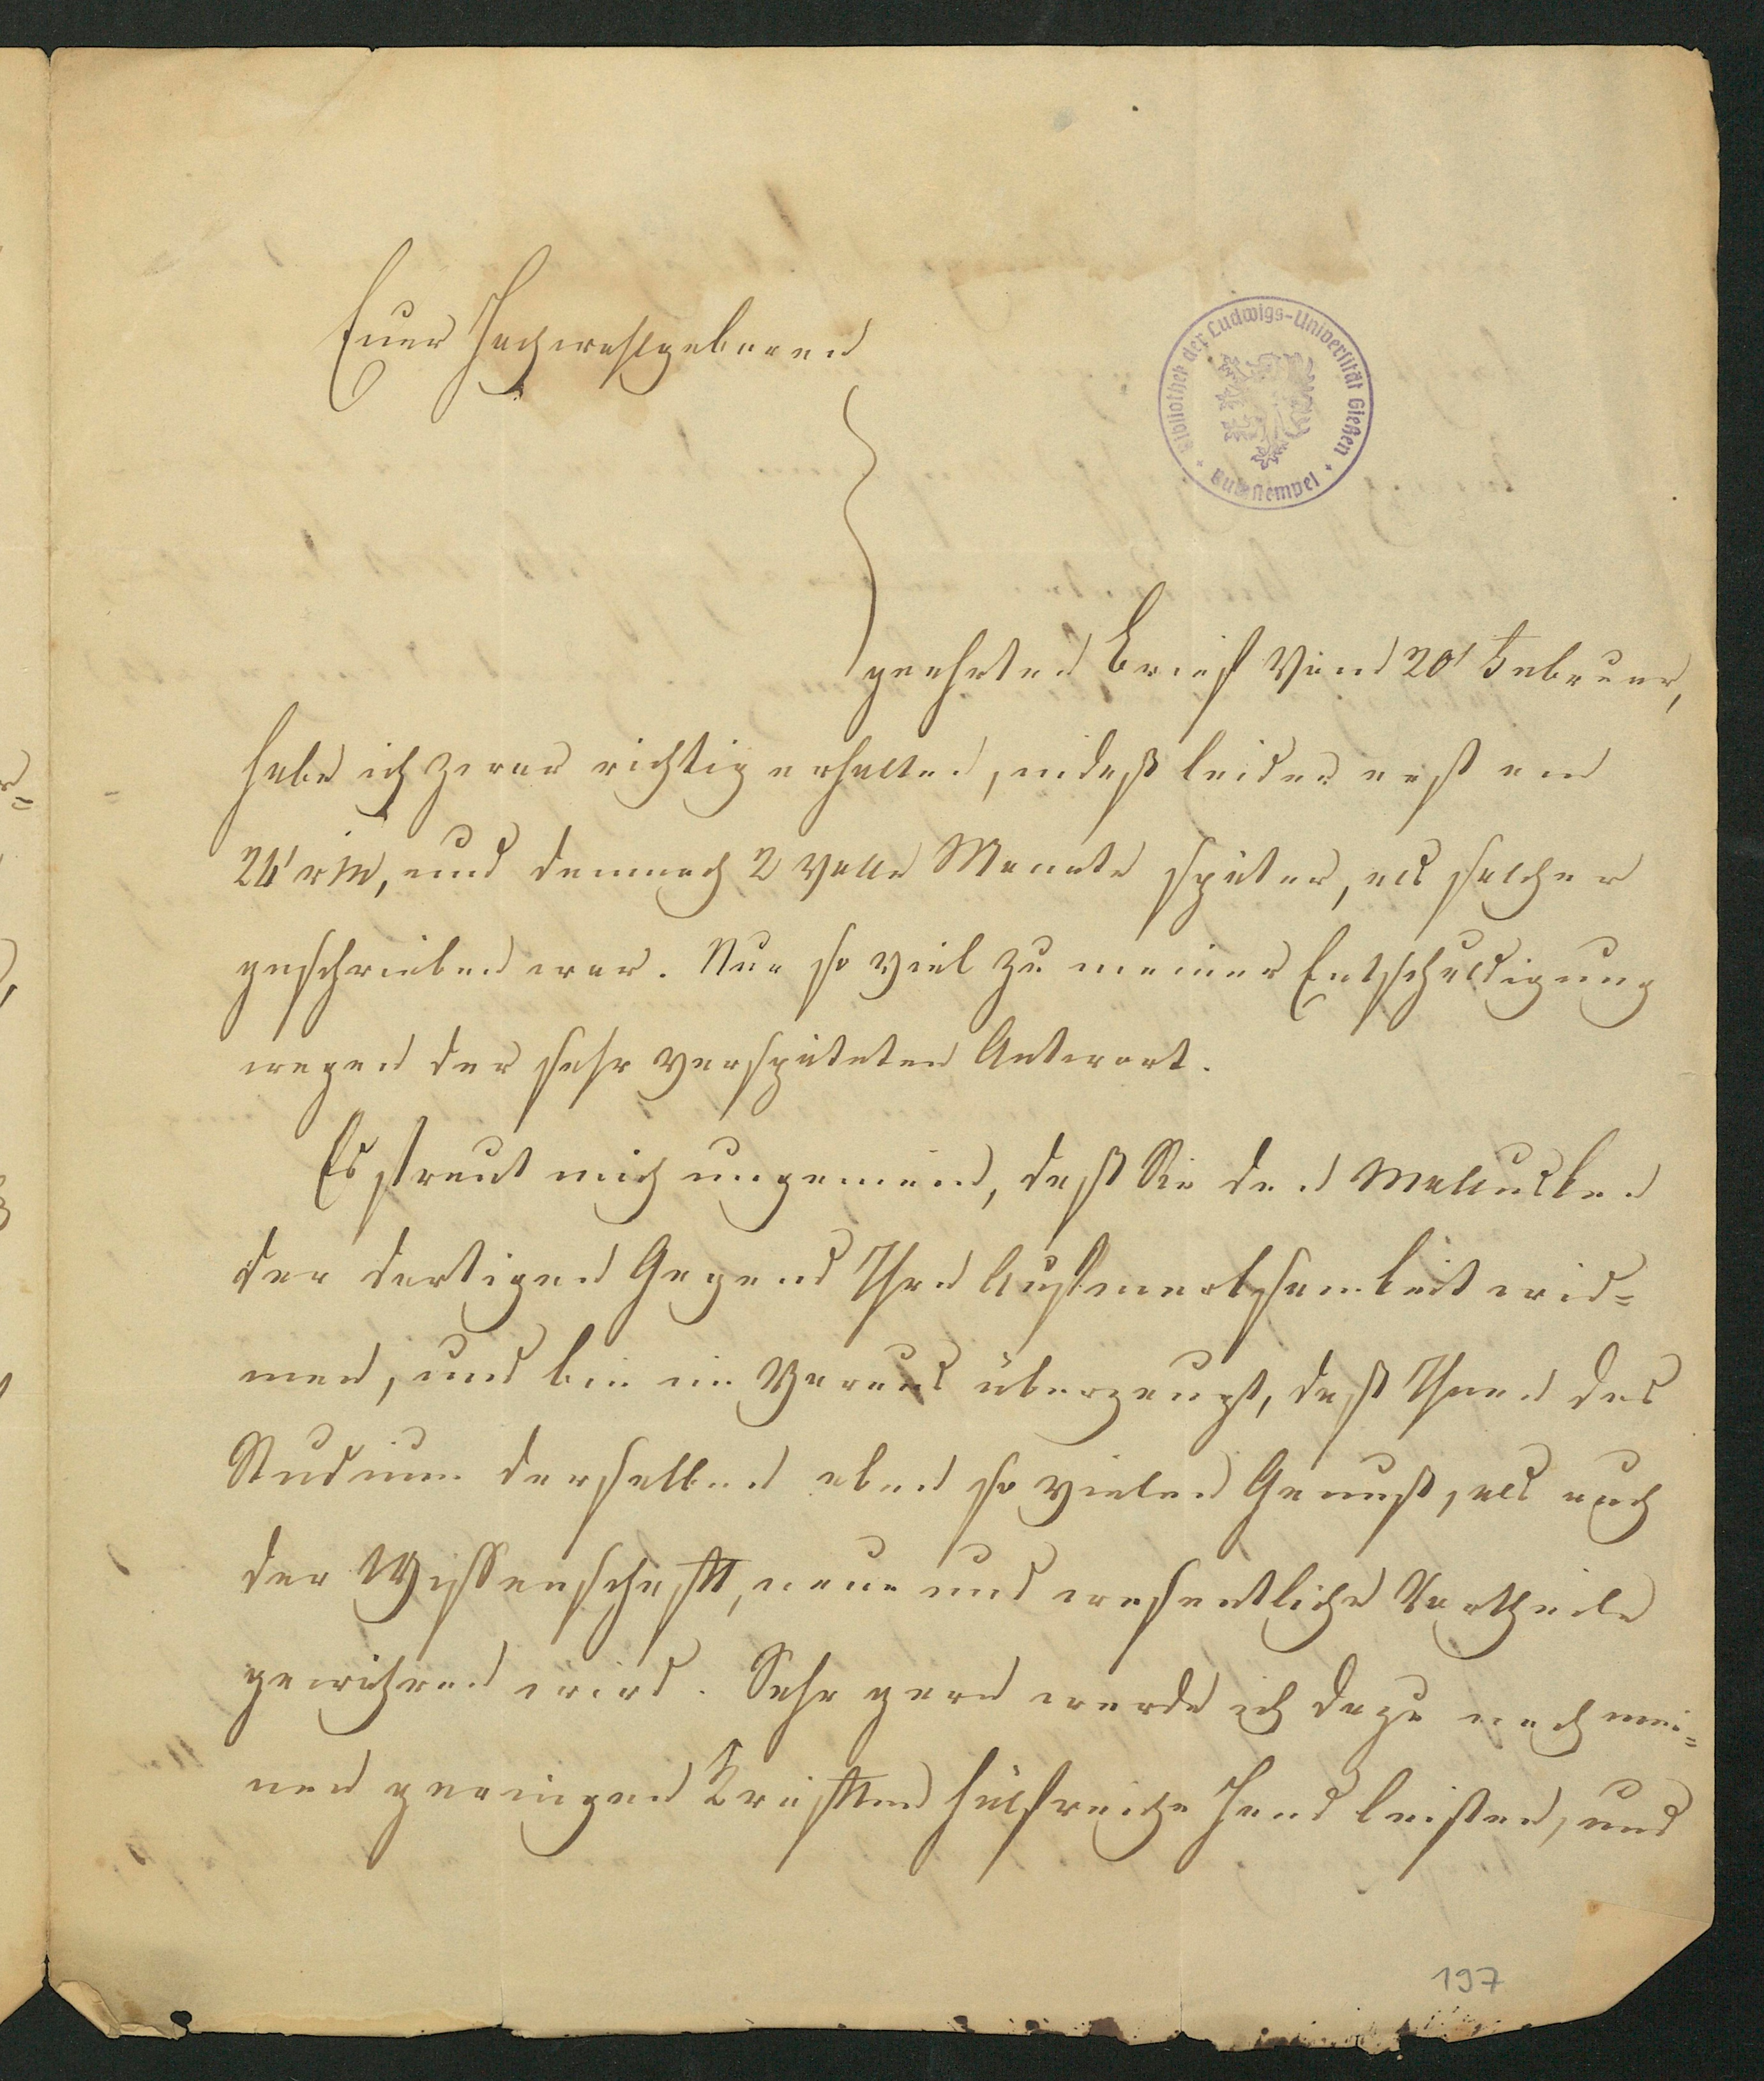 Euer Hochwohlgeboren
Bibliothek der Ludwigs-Universität Gießen
geehrten Brief vom 20' Februar,
habe ich zwar richtig erhalten, indeß leider erst am
24' v M, und demnach 2 volle Monate später, als solcher
geschrieben war. Nur so viel zu meiner Entschuldigung
wegen der sehr verspäteten Antwort.
Es freut mich ungemein, daß Sie den Mollusken
der dortigen Gegend Ihre Aufmerksamkeit wid=
men, und bin im Voraus überzeugt, daß Ihnen das
Studium derselben eben so vielen Genuß, als auch
der Wissenschaft, neue und wesentliche Vortheile
gewähren wird. Sehr gern werde ich dazu nach mei=
nen geringen Kräften hülfreiche Hand leisten, und
197